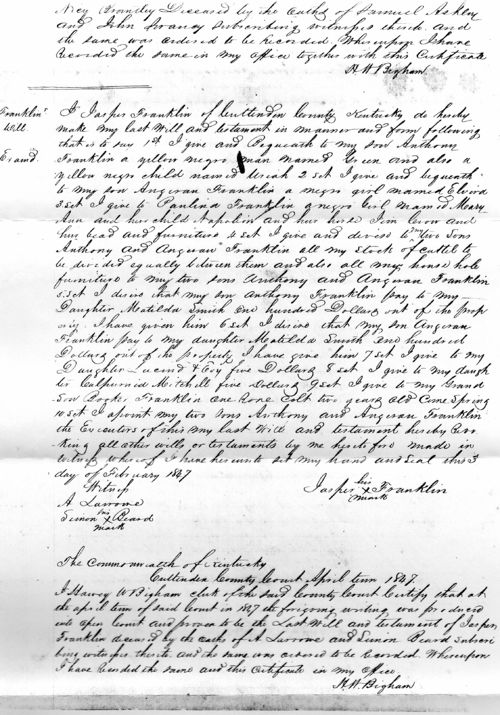 Nicy Brandy Deceased by the Oathes of Samuel Ackley
and John Feancy Subscribing witnesses thereto. and
the same was ordered to be Recorded, Whereupon I have
Recorded the same in my office together with this Certificate
H. W. Bigham
Franklin's
Will.
Exam.d
I Jasper Franklin of Crittenden County Kentucky do hereby
make my last Will and testament in manner and form following
that is to say 1st I give and Bequeath to my Son Anthony
Franklin a yellow negro man named Green and also a
yellow negro child named 2 set I give and bequeath
to my Son Angevan Franklin a negro girl named Elvira
3 set I give to Paulina Franklin a negro Girl Named Mary
Ann and her child Napolin and her horse Jim Crow and
her bead and furniture 4 set I give and devise to my two Sons
Anthony And Angevan Franklin all my Stock of Cattel to
be divided equally between them and also all my house hole
furniture to my two sons Anthony and Angevan Franklin
5 set I desire that my son Anthony Franklin pay to my
Daughter Matilda Smith One hundred Dollars out of the prop
erty I have given him 6 set I desire that my son Angevan
Franklin pay to my daughter Matilda Smith one hundred
Dollars out of the property I have give him 7 set I give to my
Daughter Lucind five Dollars 8 set I give to my daugh
ter Calpurnia Mitchell five Dollars 9 set I give to my Grand
Son Franklin One Rone Colt two years old Come Spring
10 set I apoint my two Sons Anthony and Angevan Franklin
the Executors of this my last Will and testament hereby Revo
king all other wills or testaments by me heretofore made in
Witness whereof I have hereunto set my hand and Seal this 3
day of February 1847
Witness
Jasper his X mark Franklin
A Larrome
Simon his X mark Beard
The Commonwealth of Kentucky
Crittenden County Court April term 1847.
I Harvey W Bigham clerk of the said County Court Certify that at
the april term of said Court in 1847 the forgoing writing was produced
into Open Court and proven to be the Last Will and testament of Jasper
Franklin deceased by the oathes of A Larrome and Simon Beard Subscri
bing witnesses thereto and the same was ordered to be Recorded. Whereupon
I have Recorded the same and this Certificate in my office.
H. W. Bigham